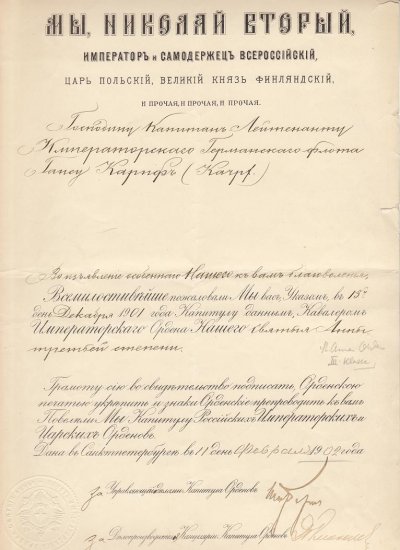 МЫ, НИКОЛАЙ ВТОРЫЙ,
ИМПЕРАТОРЪ и САМОДЕРЖЕЦЪ ВСЕРОССІЙСКІЙ,
ЦАРЬ ПОЛЬСКІЙ, ВЕЛИКІЙ КНЯЗЬ ФИНЛЯНДСКІЙ,
И ПРОЧАЯ, И ПРОЧАЯ, И ПРОЧАЯ.
Господину Капитанъ Лейтенанту
Императорскаго Германскаго флота
Гансу Карпфъ (Karpf.)
Въ изъявленіе особеннаго Нашего къ вамъ благоволенія,
Всемилостивѣйше пожаловали Мы васъ, Указомъ, въ 15й
день Декабря 1901 года Капитулу даннымъ, Кавалеромъ
Императорскаго Ордена Нашего Святыя Анны
третьей степени.
St. Anna Orden
III. Klasse
Грамоту сію во свидѣтельство подписать, Орденскою
печатью укрѣпить и знаки Орденскіе препроводить къ вамъ
Повелѣли Мы Капитулу Россійскихъ Императорскихъ и
Царскихъ Орденовъ.
Дана въ Санктпетербургѣ въ 11 день Февраля 1902 года
За Управляющаго дѣлами Капитула Орденовъ
За Дѣлопроизводителя Канцеляріи Капитула Орденовъ